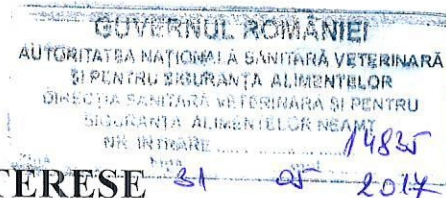 GUVERNUL ROMÂNIEI
AUTORITATEA NAȚIONALĂ SANITARĂ VETERINARĂ
ȘI PENTRU SIGURANȚA ALIMENTELOR
DIRECȚIA SANITARĂ VETERINARĂ ȘI PENTRU
SIGURANȚA ALIMENTELOR NEAMȚ
NR. INTRARE 14835
TERESE 31 05 2017